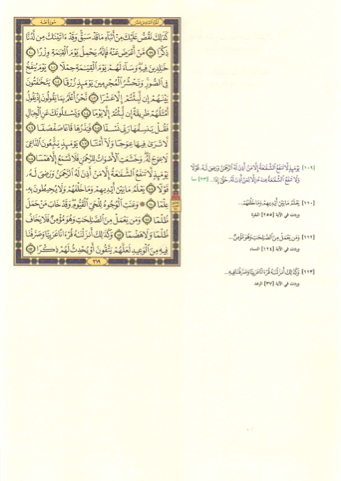 كَذَٰلِكَ نَقُصُّ عَلَيْكَ مِنْ أَنۢبَآءِ مَا قَدْ سَبَقَ وَقَدْ ءَاتَيْنَٰكَ مِن لَّدُنَّا
ذِكْرًا ۝ مَّنْ أَعْرَضَ عَنْهُ فَإِنَّهُۥ يَحْمِلُ يَوْمَ ٱلْقِيَٰمَةِ وِزْرًا ۝
خَٰلِدِينَ فِيهِ وَسَآءَ لَهُمْ يَوْمَ ٱلْقِيَٰمَةِ حِمْلًا ۝ يَوْمَ يُنفَخُ
فِى ٱلصُّورِ وَنَحْشُرُ ٱلْمُجْرِمِينَ يَوْمَئِذٍ زُرْقًا ۝ يَتَخَٰفَتُونَ
بَيْنَهُمْ إِن لَّبِثْتُمْ إِلَّا عَشْرًا ۝ نَّحْنُ أَعْلَمُ بِمَا يَقُولُونَ إِذْ يَقُولُ
أَمْثَلُهُمْ طَرِيقَةً إِن لَّبِثْتُمْ إِلَّا يَوْمًا ۝ وَيَسْـَٔلُونَكَ عَنِ ٱلْجِبَالِ
فَقُلْ يَنسِفُهَا رَبِّى نَسْفًا ۝ فَيَذَرُهَا قَاعًا صَفْصَفًا ۝
لَّا تَرَىٰ فِيهَا عِوَجًا وَلَآ أَمْتًا ۝ يَوْمَئِذٍ يَتَّبِعُونَ ٱلدَّاعِىَ
لَا عِوَجَ لَهُۥ وَخَشَعَتِ ٱلْأَصْوَاتُ لِلرَّحْمَٰنِ فَلَا تَسْمَعُ إِلَّا هَمْسًا ۝
يَوْمَئِذٍ لَّا تَنفَعُ ٱلشَّفَٰعَةُ إِلَّا مَنْ أَذِنَ لَهُ ٱلرَّحْمَٰنُ وَرَضِىَ لَهُۥ
قَوْلًا ۝ يَعْلَمُ مَا بَيْنَ أَيْدِيهِمْ وَمَا خَلْفَهُمْ وَلَا يُحِيطُونَ بِهِۦ
عِلْمًا ۝ وَعَنَتِ ٱلْوُجُوهُ لِلْحَىِّ ٱلْقَيُّومِ وَقَدْ خَابَ مَنْ حَمَلَ
ظُلْمًا ۝ وَمَن يَعْمَلْ مِنَ ٱلصَّٰلِحَٰتِ وَهُوَ مُؤْمِنٌ فَلَا يَخَافُ
ظُلْمًا وَلَا هَضْمًا ۝ وَكَذَٰلِكَ أَنزَلْنَٰهُ قُرْءَانًا عَرَبِيًّا وَصَرَّفْنَا
فِيهِ مِنَ ٱلْوَعِيدِ لَعَلَّهُمْ يَتَّقُونَ أَوْ يُحْدِثُ لَهُمْ ذِكْرًا ۝
٣١٩
[١٠٩] يَوْمَئِذٍ لَّا تَنفَعُ ٱلشَّفَٰعَةُ إِلَّا مَنْ أَذِنَ لَهُ ٱلرَّحْمَٰنُ وَرَضِىَ لَهُۥ قَوْلًا
وَلَا تَنفَعُ ٱلشَّفَٰعَةُ عِندَهُۥٓ إِلَّا لِمَنْ أَذِنَ لَهُۥ حَتَّىٰٓ إِذَا... [٢٣] سبأ
[١١٠] يَعْلَمُ مَا بَيْنَ أَيْدِيهِمْ وَمَا خَلْفَهُمْ...
وردت في الآية [٢٥٥] البقرة
[١١٢] وَمَن يَعْمَلْ مِنَ ٱلصَّٰلِحَٰتِ وَهُوَ مُؤْمِنٌ...
وردت في الآية [١٢٤] النساء
[١١٣] وَكَذَٰلِكَ أَنزَلْنَٰهُ قُرْءَانًا عَرَبِيًّا وَصَرَّفْنَا فِيهِ...
وردت في الآية [٣٧] الرعد